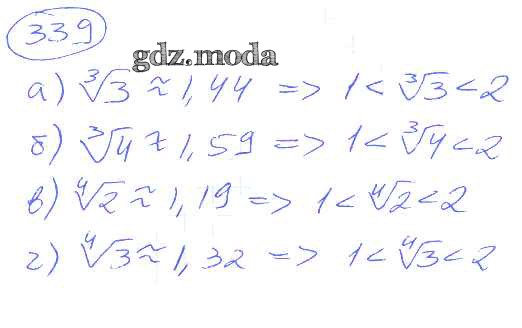 339
gdz.moda
а) ∛3 ≈ 1,44 => 1 < ∛3 < 2
б) ∛4 ≈ 1,59 => 1 < ∛4 < 2
в) ∜2 ≈ 1,19 => 1 < ∜2 < 2
г) ∜3 ≈ 1,32 => 1 < ∜3 < 2